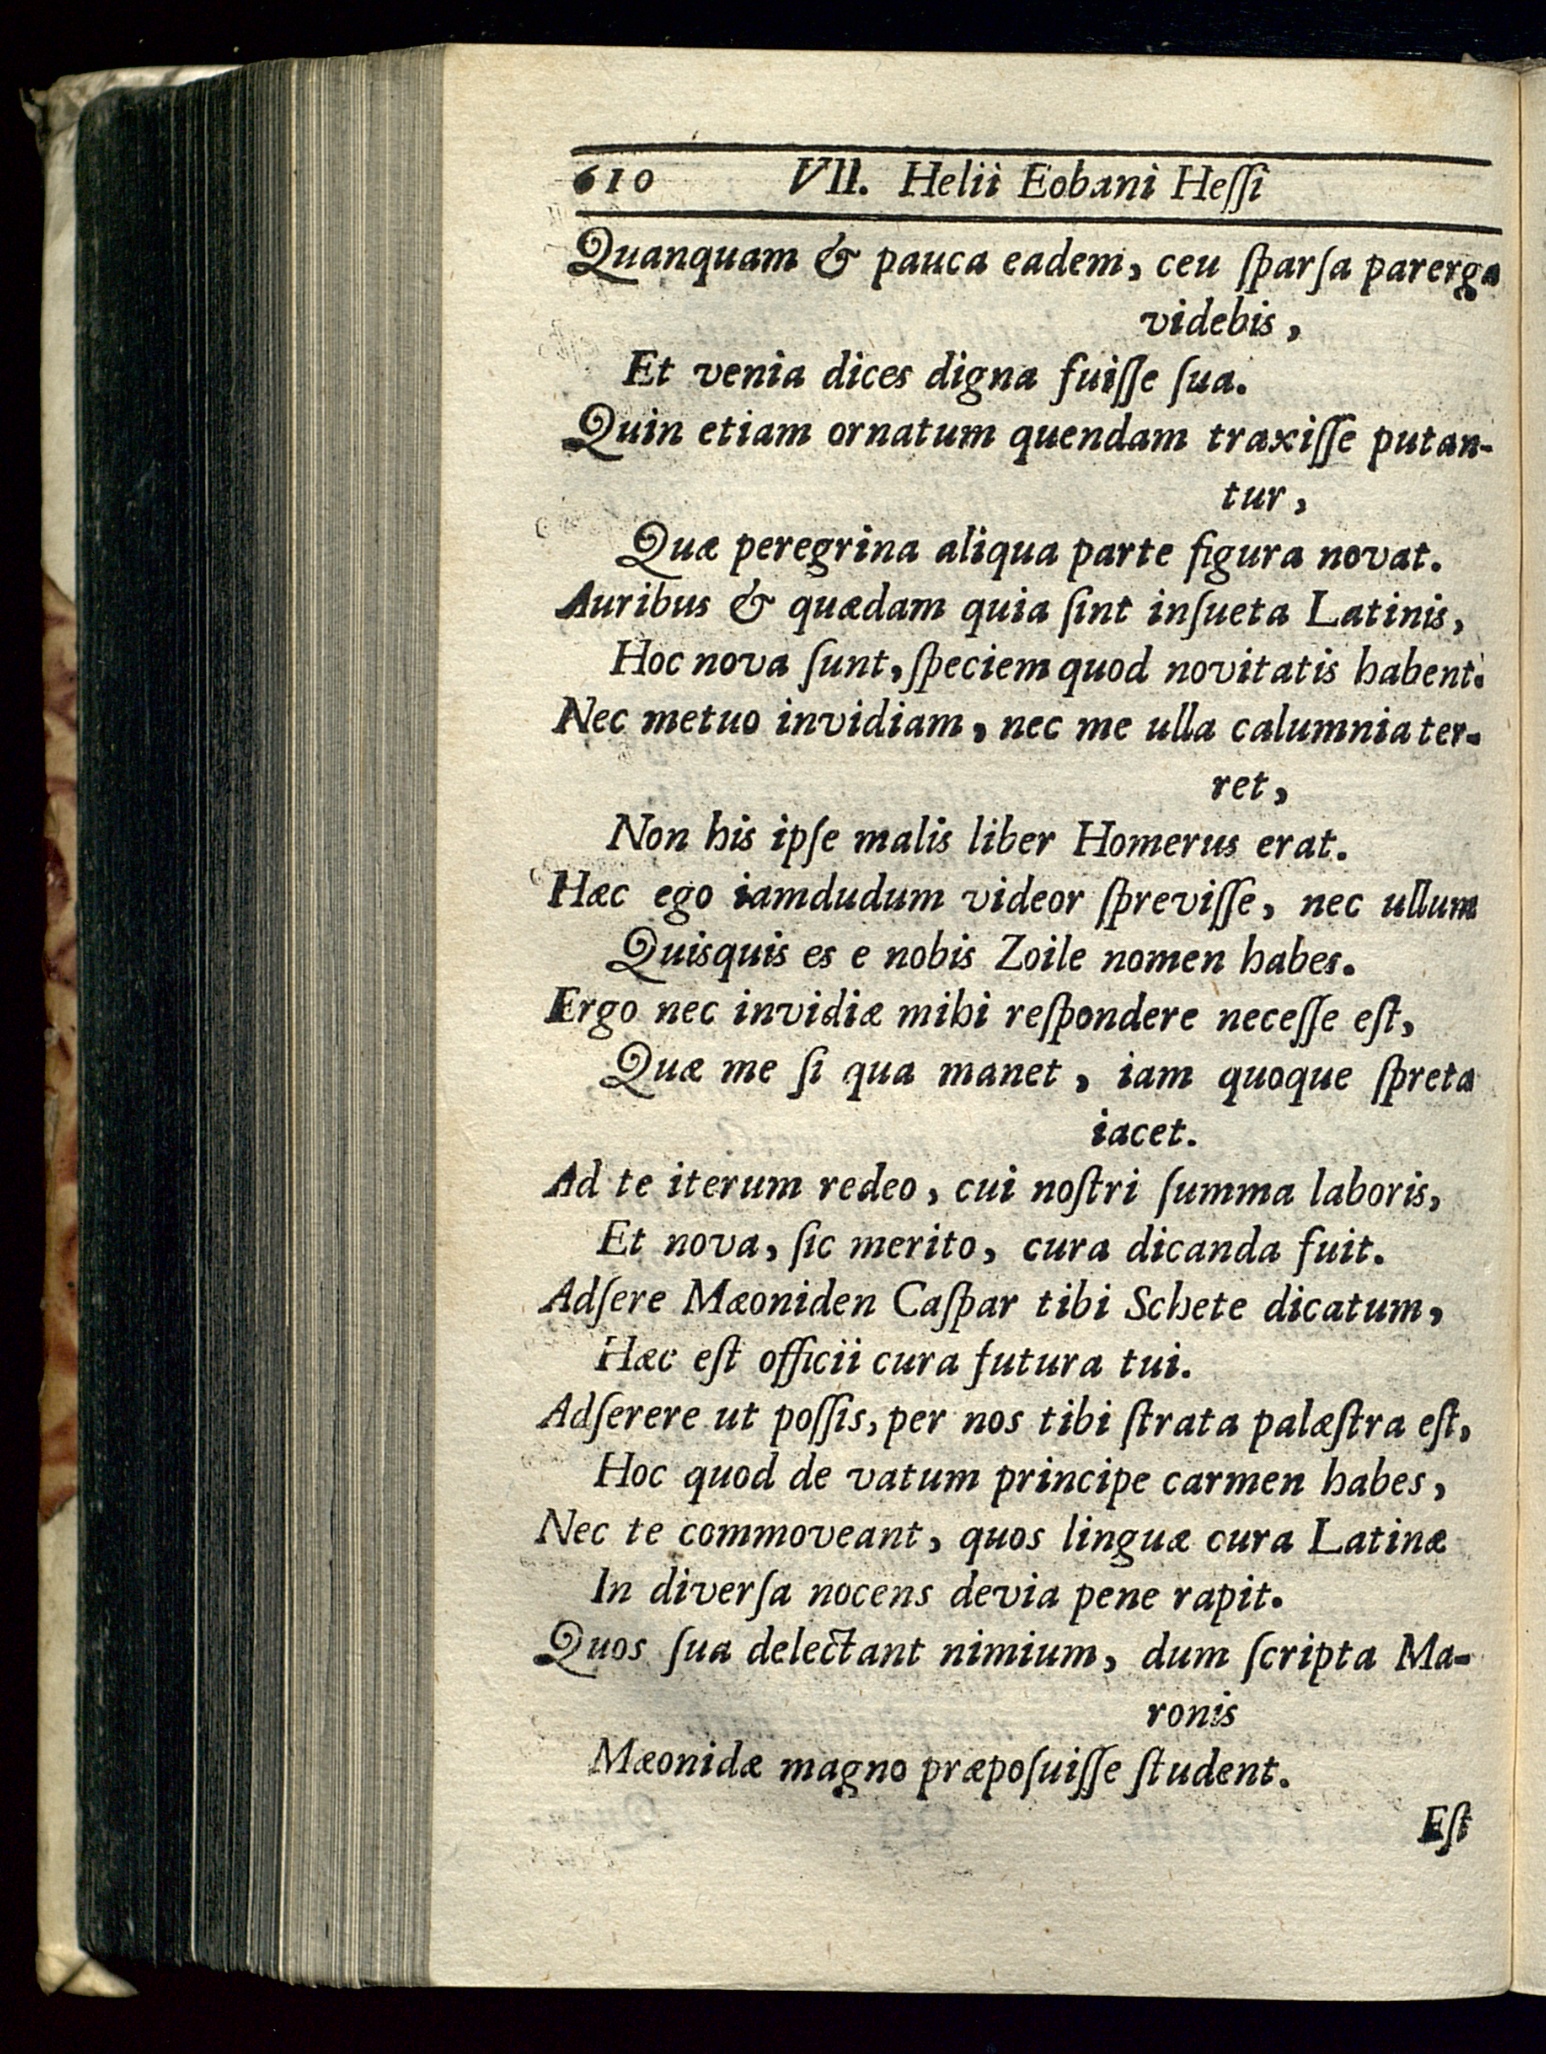 610 VII. Helii Eobani Heſſi
Quanquam & pauca eadem, ceu ſparſa parerga
videbis,
Et venia dices digna fuiſſe ſua.
Quin etiam ornatum quendam traxiſſe putan-
tur,
Quæ peregrina aliqua parte figura novat.
Auribus & quædam quia ſint inſueta Latinis,
Hoc nova ſunt, ſpeciem quod novitatis habent.
Nec metuo invidiam, nec me ulla calumnia ter-
ret,
Non his ipſe malis liber Homerus erat.
Hæc ego iamdudum videor ſpreviſſe, nec ullum
Quisquis es e nobis Zoile nomen habes.
Ergo nec invidiæ mihi reſpondere neceſſe eſt,
Quæ me ſi qua manet, iam quoque ſpreta
iacet.
Ad te iterum redeo, cui noſtri ſumma laboris,
Et nova, ſic merito, cura dicanda fuit.
Adſere Mæoniden Caſpar tibi Schete dicatum,
Hæc eſt officii cura futura tui.
Adſerere ut poſſis, per nos tibi ſtrata palæſtra eſt,
Hoc quod de vatum principe carmen habes,
Nec te commoveant, quos linguæ cura Latinæ
In diverſa nocens devia pene rapit.
Quos ſua delectant nimium, dum ſcripta Ma-
ronis
Mæonidæ magno præpoſuiſſe ſtudent.
Eſt